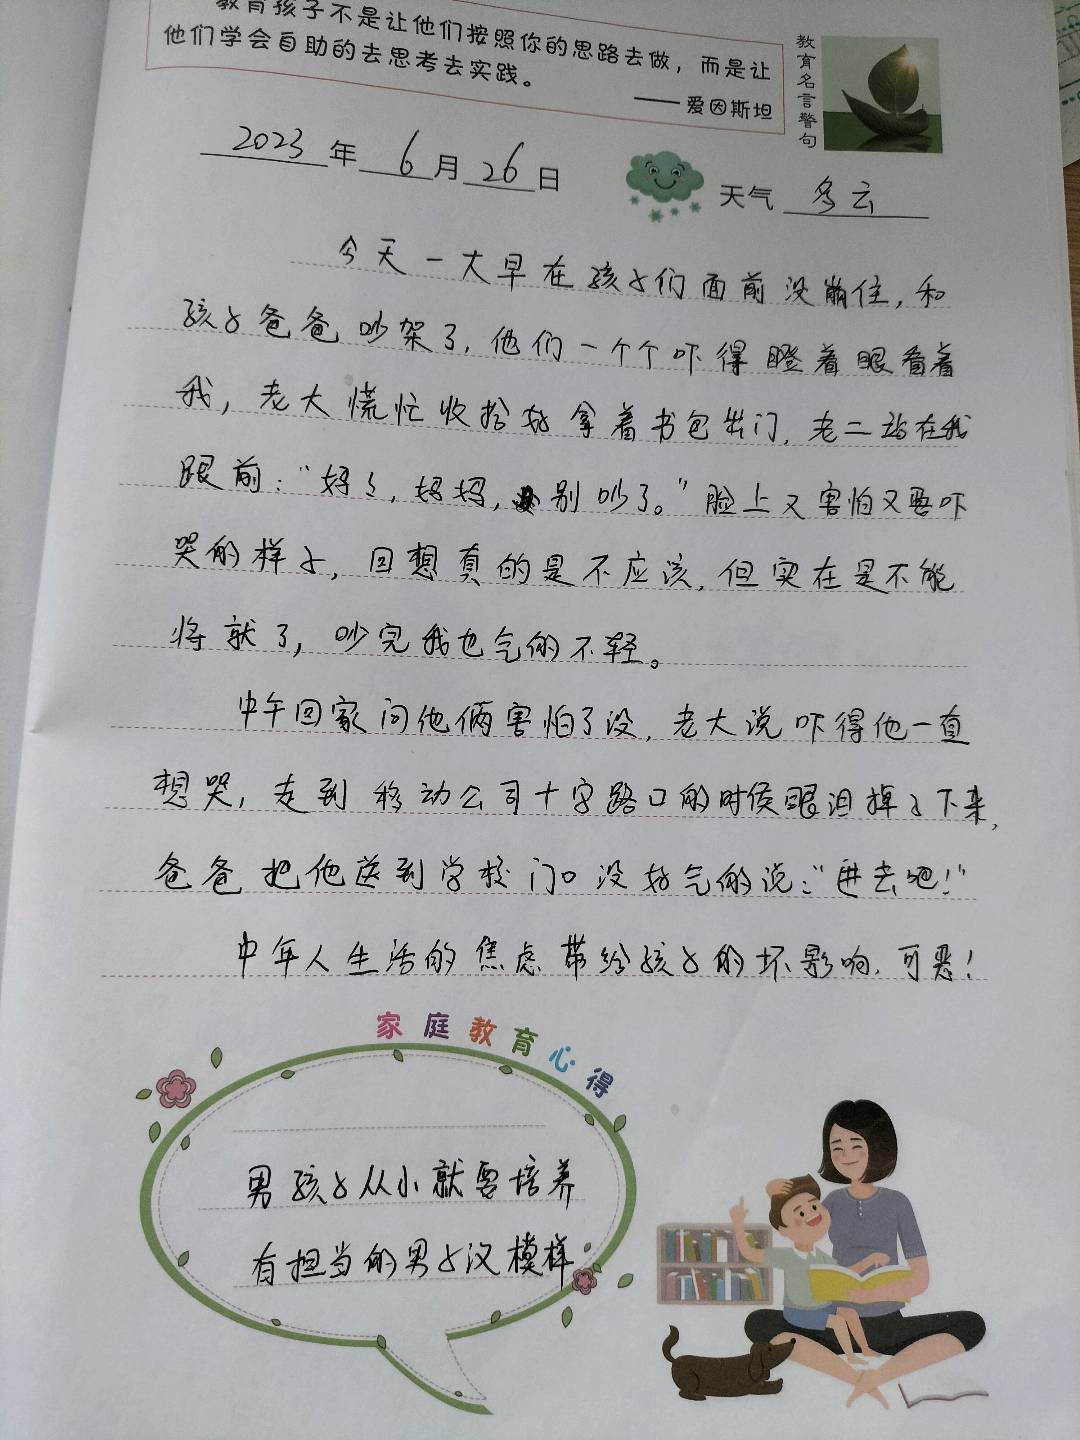 教育孩子不是让他们按照你的思路去做，而是让
他们学会自助的去思考去实践。
——爱因斯坦
教育名言警句
2023年6月26日
天气 多云
今天一大早在孩子们面前没崩住,和
孩子爸爸吵架了,他们一个个吓得瞪着眼看着
我,老大慌忙收拾好拿着书包出门,老二站在我
跟前:"妈々,妈妈,别吵了。"脸上又害怕又要吓
哭的样子,回想真的是不应该,但实在是不能
将就了,吵完我也气的不轻。
中午回家问他俩害怕了没,老大说吓得他一直
想哭,走到移动公司十字路口的时候眼泪掉了下来,
爸爸把他送到学校门口没好气的说:"进去吧!"
中年人生活的焦虑带给孩子的坏影响,可恶!
家庭教育心得
男孩子从小就要培养
有担当的男子汉模样